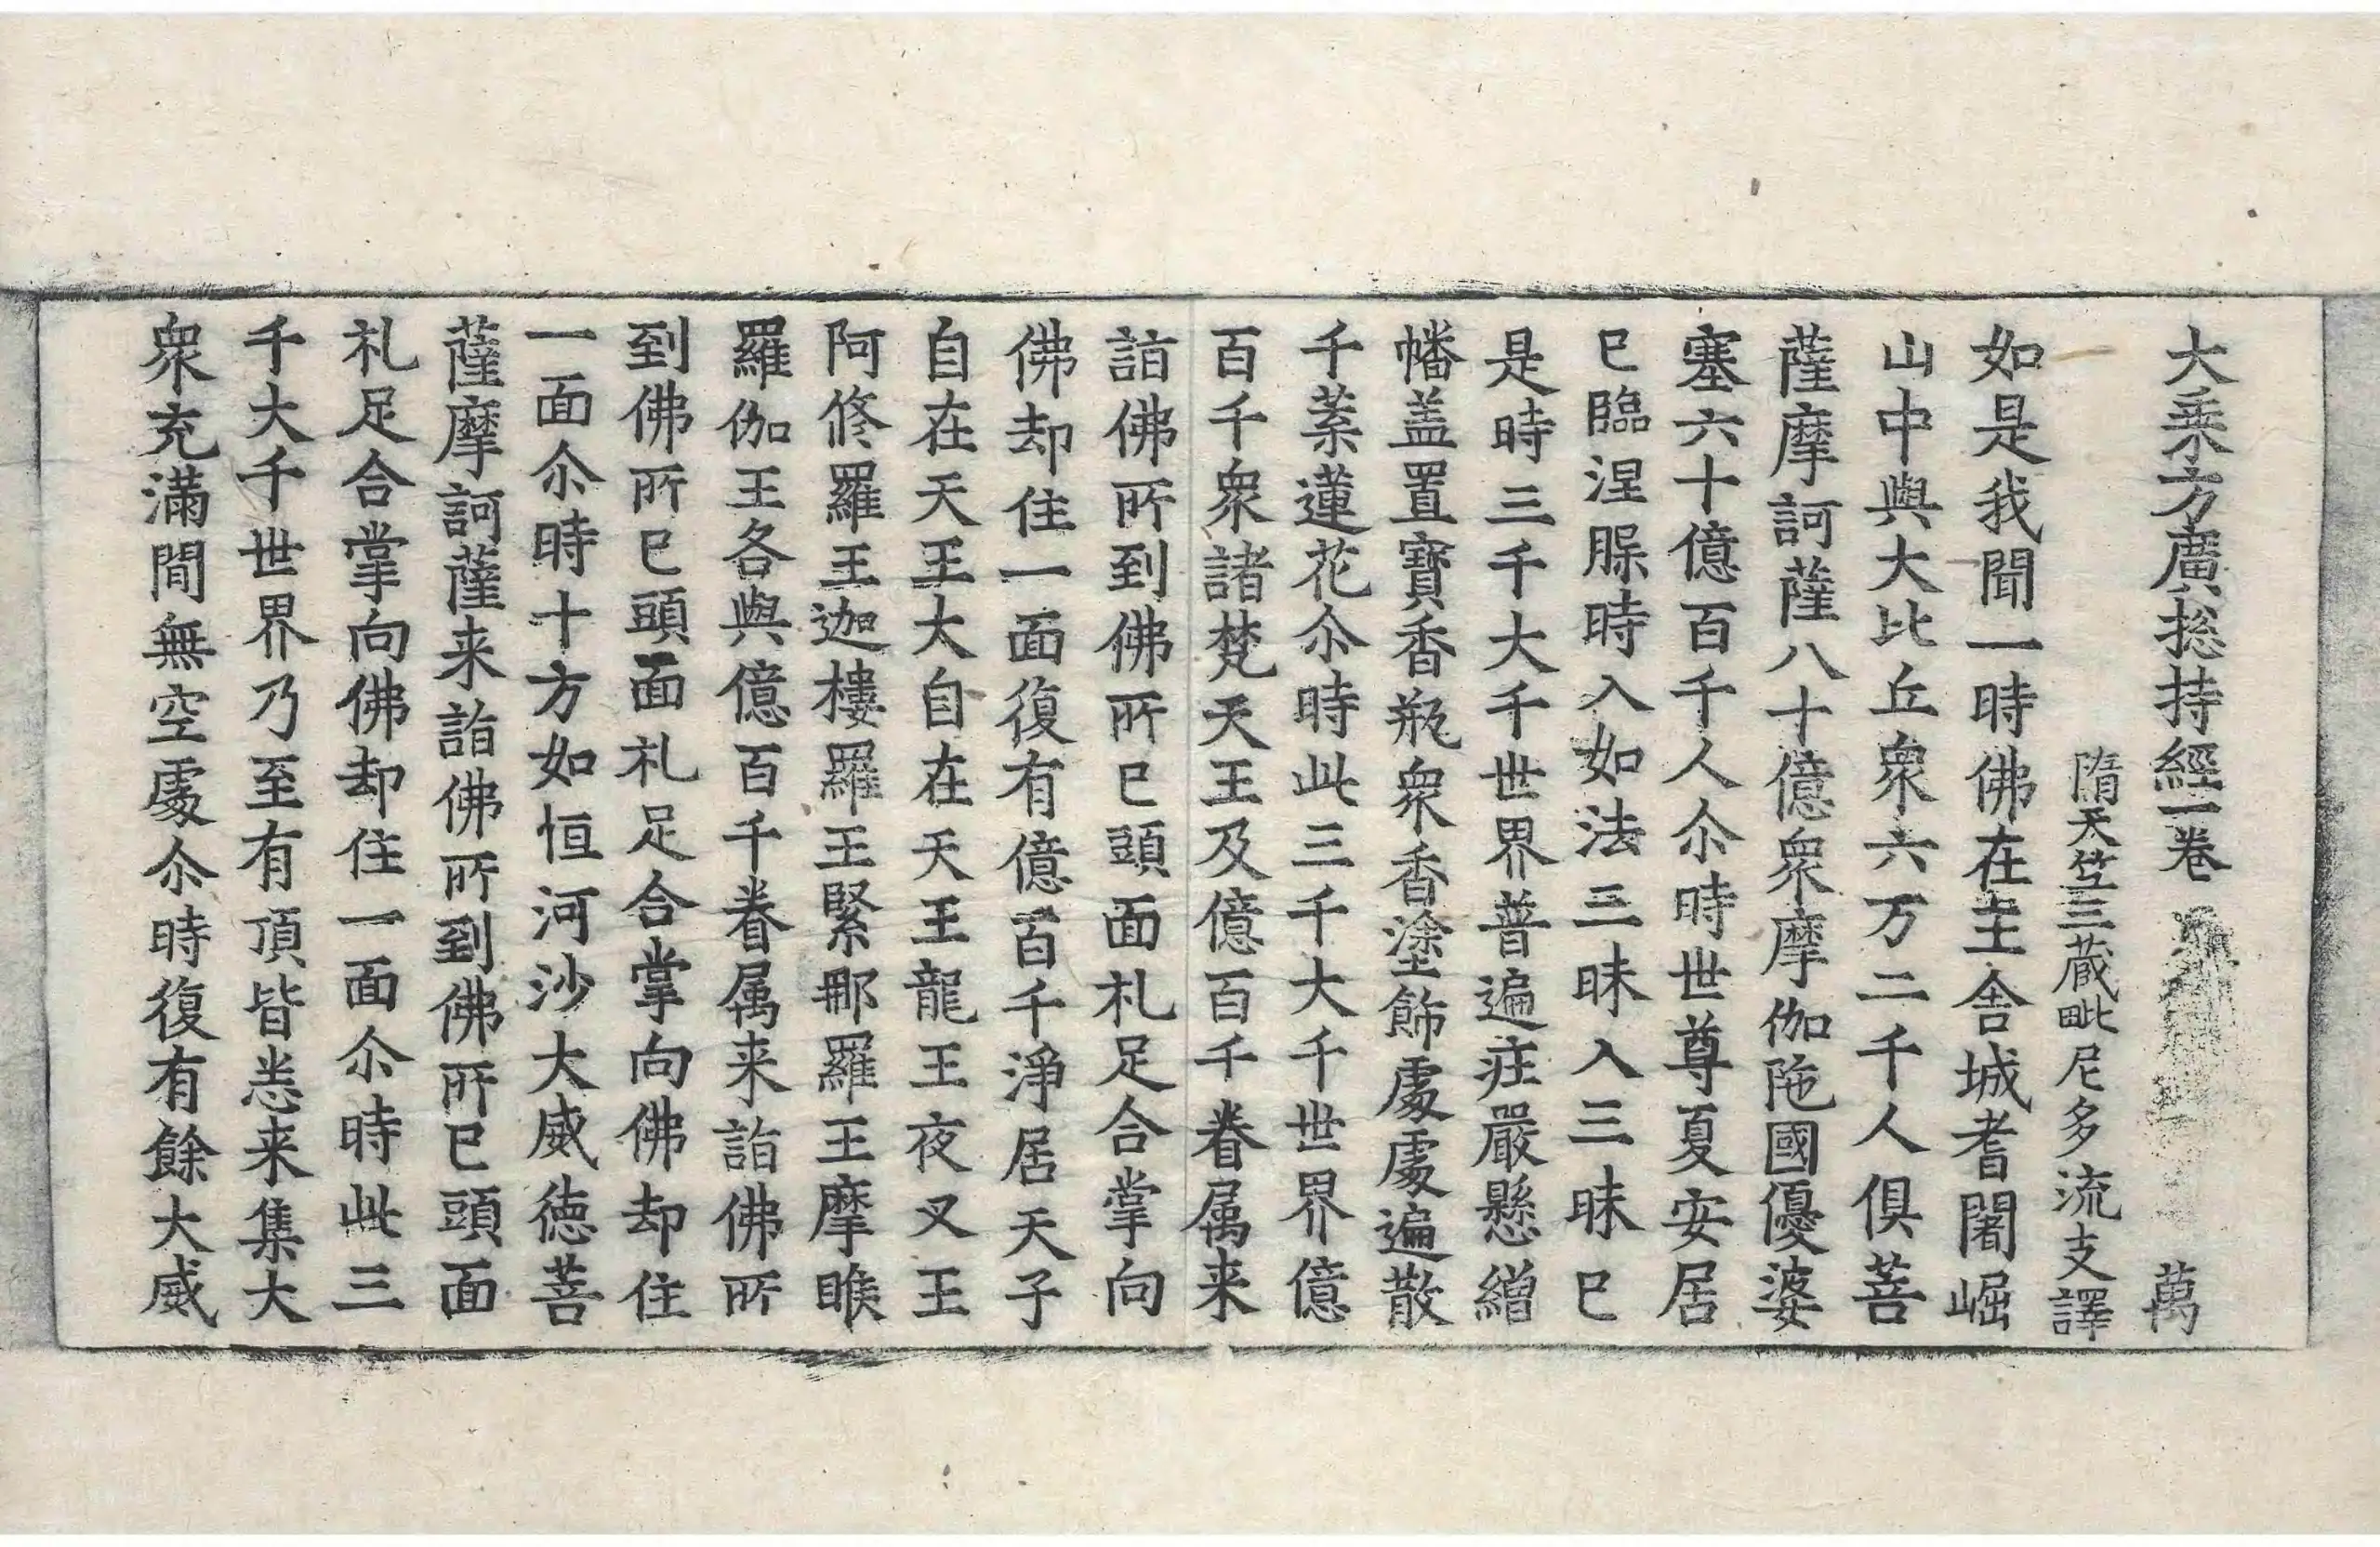 大乘方廣捴持經一卷 萬
隋天竺三藏毗尼多流支譯
如是我聞一時佛在王舍城耆闍崛
山中與大比丘衆六万二千人俱菩
薩摩訶薩八十億衆摩伽陁國優婆
塞六十億百千人尒時世尊夏安居
已臨涅脲時入如法三昧入三昧已
是時三千大千世界普遍庄嚴懸繒
幡盖置寶香瓶衆香塗飾處處遍散
千葉蓮花尒時此三千大千世界億
百千衆諸梵天王及億百千眷属来
詣佛所到佛所已頭面礼足合掌向
佛却住一面復有億百千淨居天子
自在天王大自在天王龍王夜叉王
阿脩羅王迦樓羅王緊那羅王摩睺
羅伽王各與億百千眷属来詣佛所
到佛所已頭面礼足合掌向佛却住
一面尒時十方如恒河沙大威徳菩
薩摩訶薩来詣佛所到佛所已頭面
礼足合掌向佛却住一面尒時此三
千大千世界乃至有頂皆悉来集大
衆充滿閒無空處尒時復有餘大威